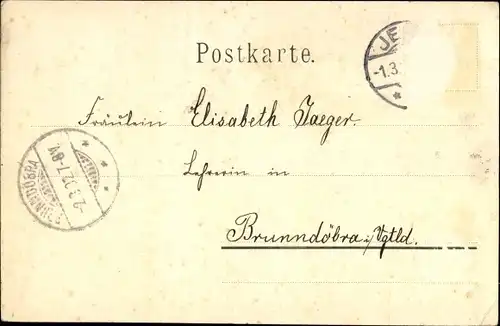 Postkarte.
JE
-1.3.
Fräulein Elisabeth Jaeger.
Lehrerin in
Brunndöbra i/Vgtld.
BRUNNDÖBRA
-2.3.02.7-8V.